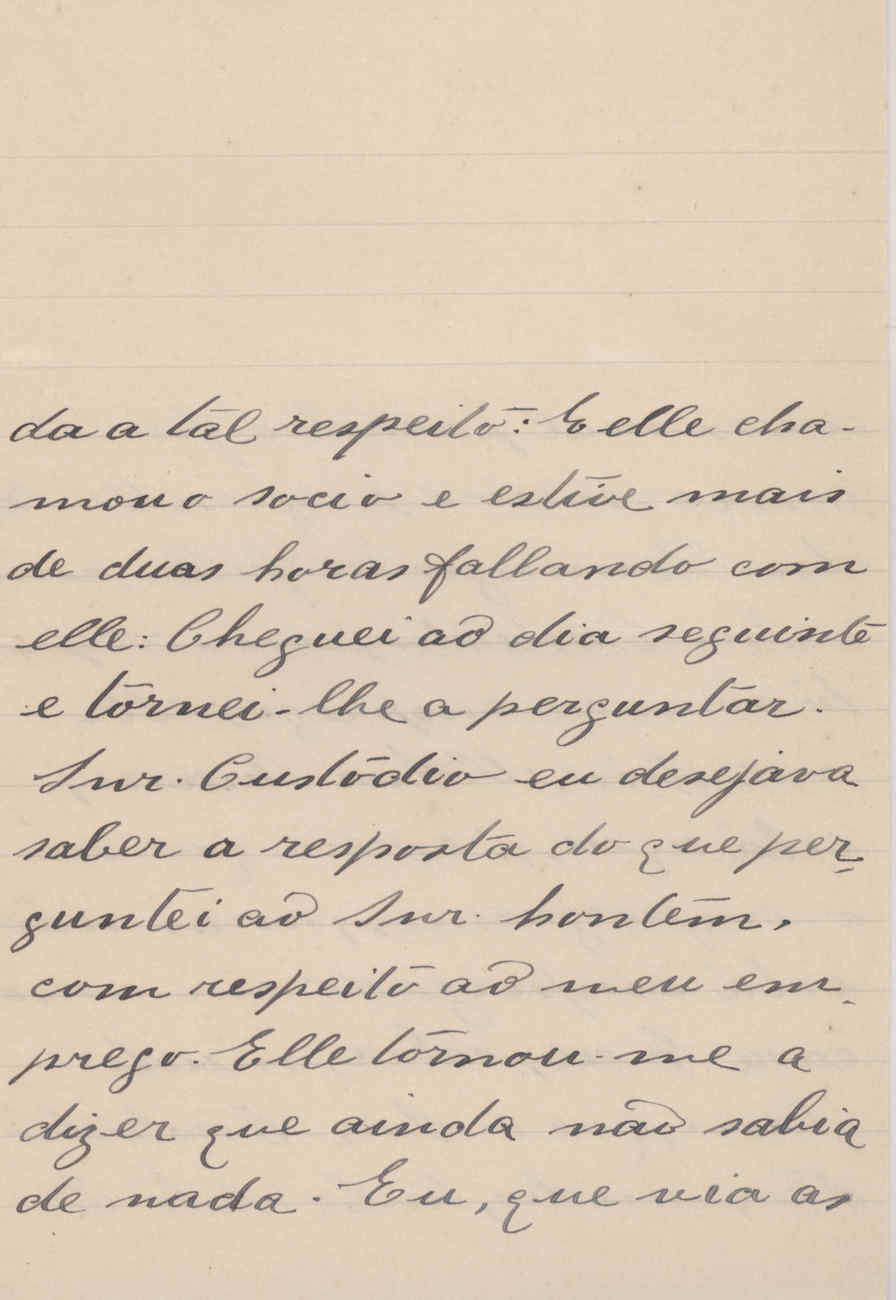 da a tal respeito: E elle cha-
mou o socio e estive mais
de duas horas fallando com
elle: Cheguei ao dia seguinte
e tornei-lhe a perguntar.
Snr. Custódio eu desejava
saber a resposta do que per-
guntei ao Snr. hontem,
com respeito ao meu em-
prego. Elle tornou-me a
dizer que ainda não sabia
de nada. Eu, que via as